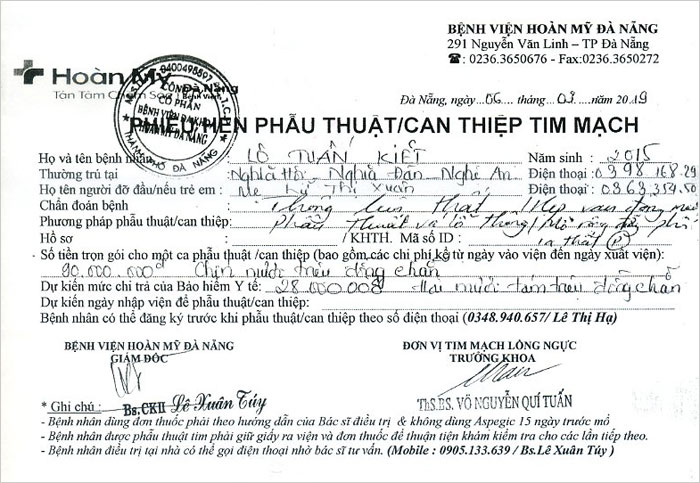 BỆNH VIỆN HOÀN MỸ ĐÀ NẴNG
291 Nguyễn Văn Linh – TP Đà Nẵng
☎: 0236.3650676 - Fax:0236.3650272
Hoàn Mỹ
Đà Nẵng
Tận Tâm Chăm Sóc
Bệnh viện
M.S.D.N: 0400495597
CÔNG TY
CỔ PHẦN
BỆNH VIỆN ĐA KHOA
HOÀN MỸ ĐÀ NẴNG
THÀNH PHỐ ĐÀ NẴNG
Đà Nẵng, ngày 06 tháng 03 năm 2019
PHIẾU HẸN PHẪU THUẬT/CAN THIỆP TIM MẠCH
Họ và tên bệnh nhân : LÔ TUẤN KIỆT Năm sinh : 2015
Thường trú tại Nghĩa Hội - Nghĩa Đàn - Nghệ An Điện thoại : 0398 168.29
Họ tên người đỡ đầu/nếu trẻ em : Mẹ Thị Xuân Điện thoại : 0363.354.50
Chẩn đoán bệnh : Thông liên thất / Hẹp van động mạch
Phương pháp phẫu thuật/can thiệp: Phẫu thuật vá lỗ thông / Mở rộng
Hồ sơ : / KHTH. Mã số ID : thất (P)
Số tiền trọn gói cho một ca phẫu thuật /can thiệp (bao gồm các chi phí kể từ ngày vào viện đến ngày xuất viện):
90.000.000đ Chín mươi triệu đồng chẵn
Dự kiến mức chi trả của Bảo hiểm Y tế: 28.000.000đ Hai mươi tám triệu đồng chẵn
Dự kiến ngày nhập viện để phẫu thuật/can thiệp:
Bệnh nhân có thể đăng ký trước khi phẫu thuật/can thiệp theo số điện thoại (0348.940.657/ Lê Thị Hạ)
BỆNH VIỆN HOÀN MỸ ĐÀ NẴNG ĐƠN VỊ TIM MẠCH LỒNG NGỰC
GIÁM ĐỐC TRƯỞNG KHOA
Bs.CKII Lê Xuân Túy ThS.BS. VÕ NGUYỄN QUÍ TUẤN
* Ghi chú :
- Bệnh nhân dùng đơn thuốc phải theo hướng dẫn của Bác sĩ điều trị & không dùng Aspegic 15 ngày trước mổ
- Bệnh nhân được phẫu thuật tim phải giữ giấy ra viện và đơn thuốc để thuận tiện khám kiểm tra cho các lần tiếp theo.
- Bệnh nhân điều trị tại nhà có thể gọi điện thoại nhờ bác sĩ tư vấn. (Mobile : 0905.133.639 / Bs.Lê Xuân Túy )